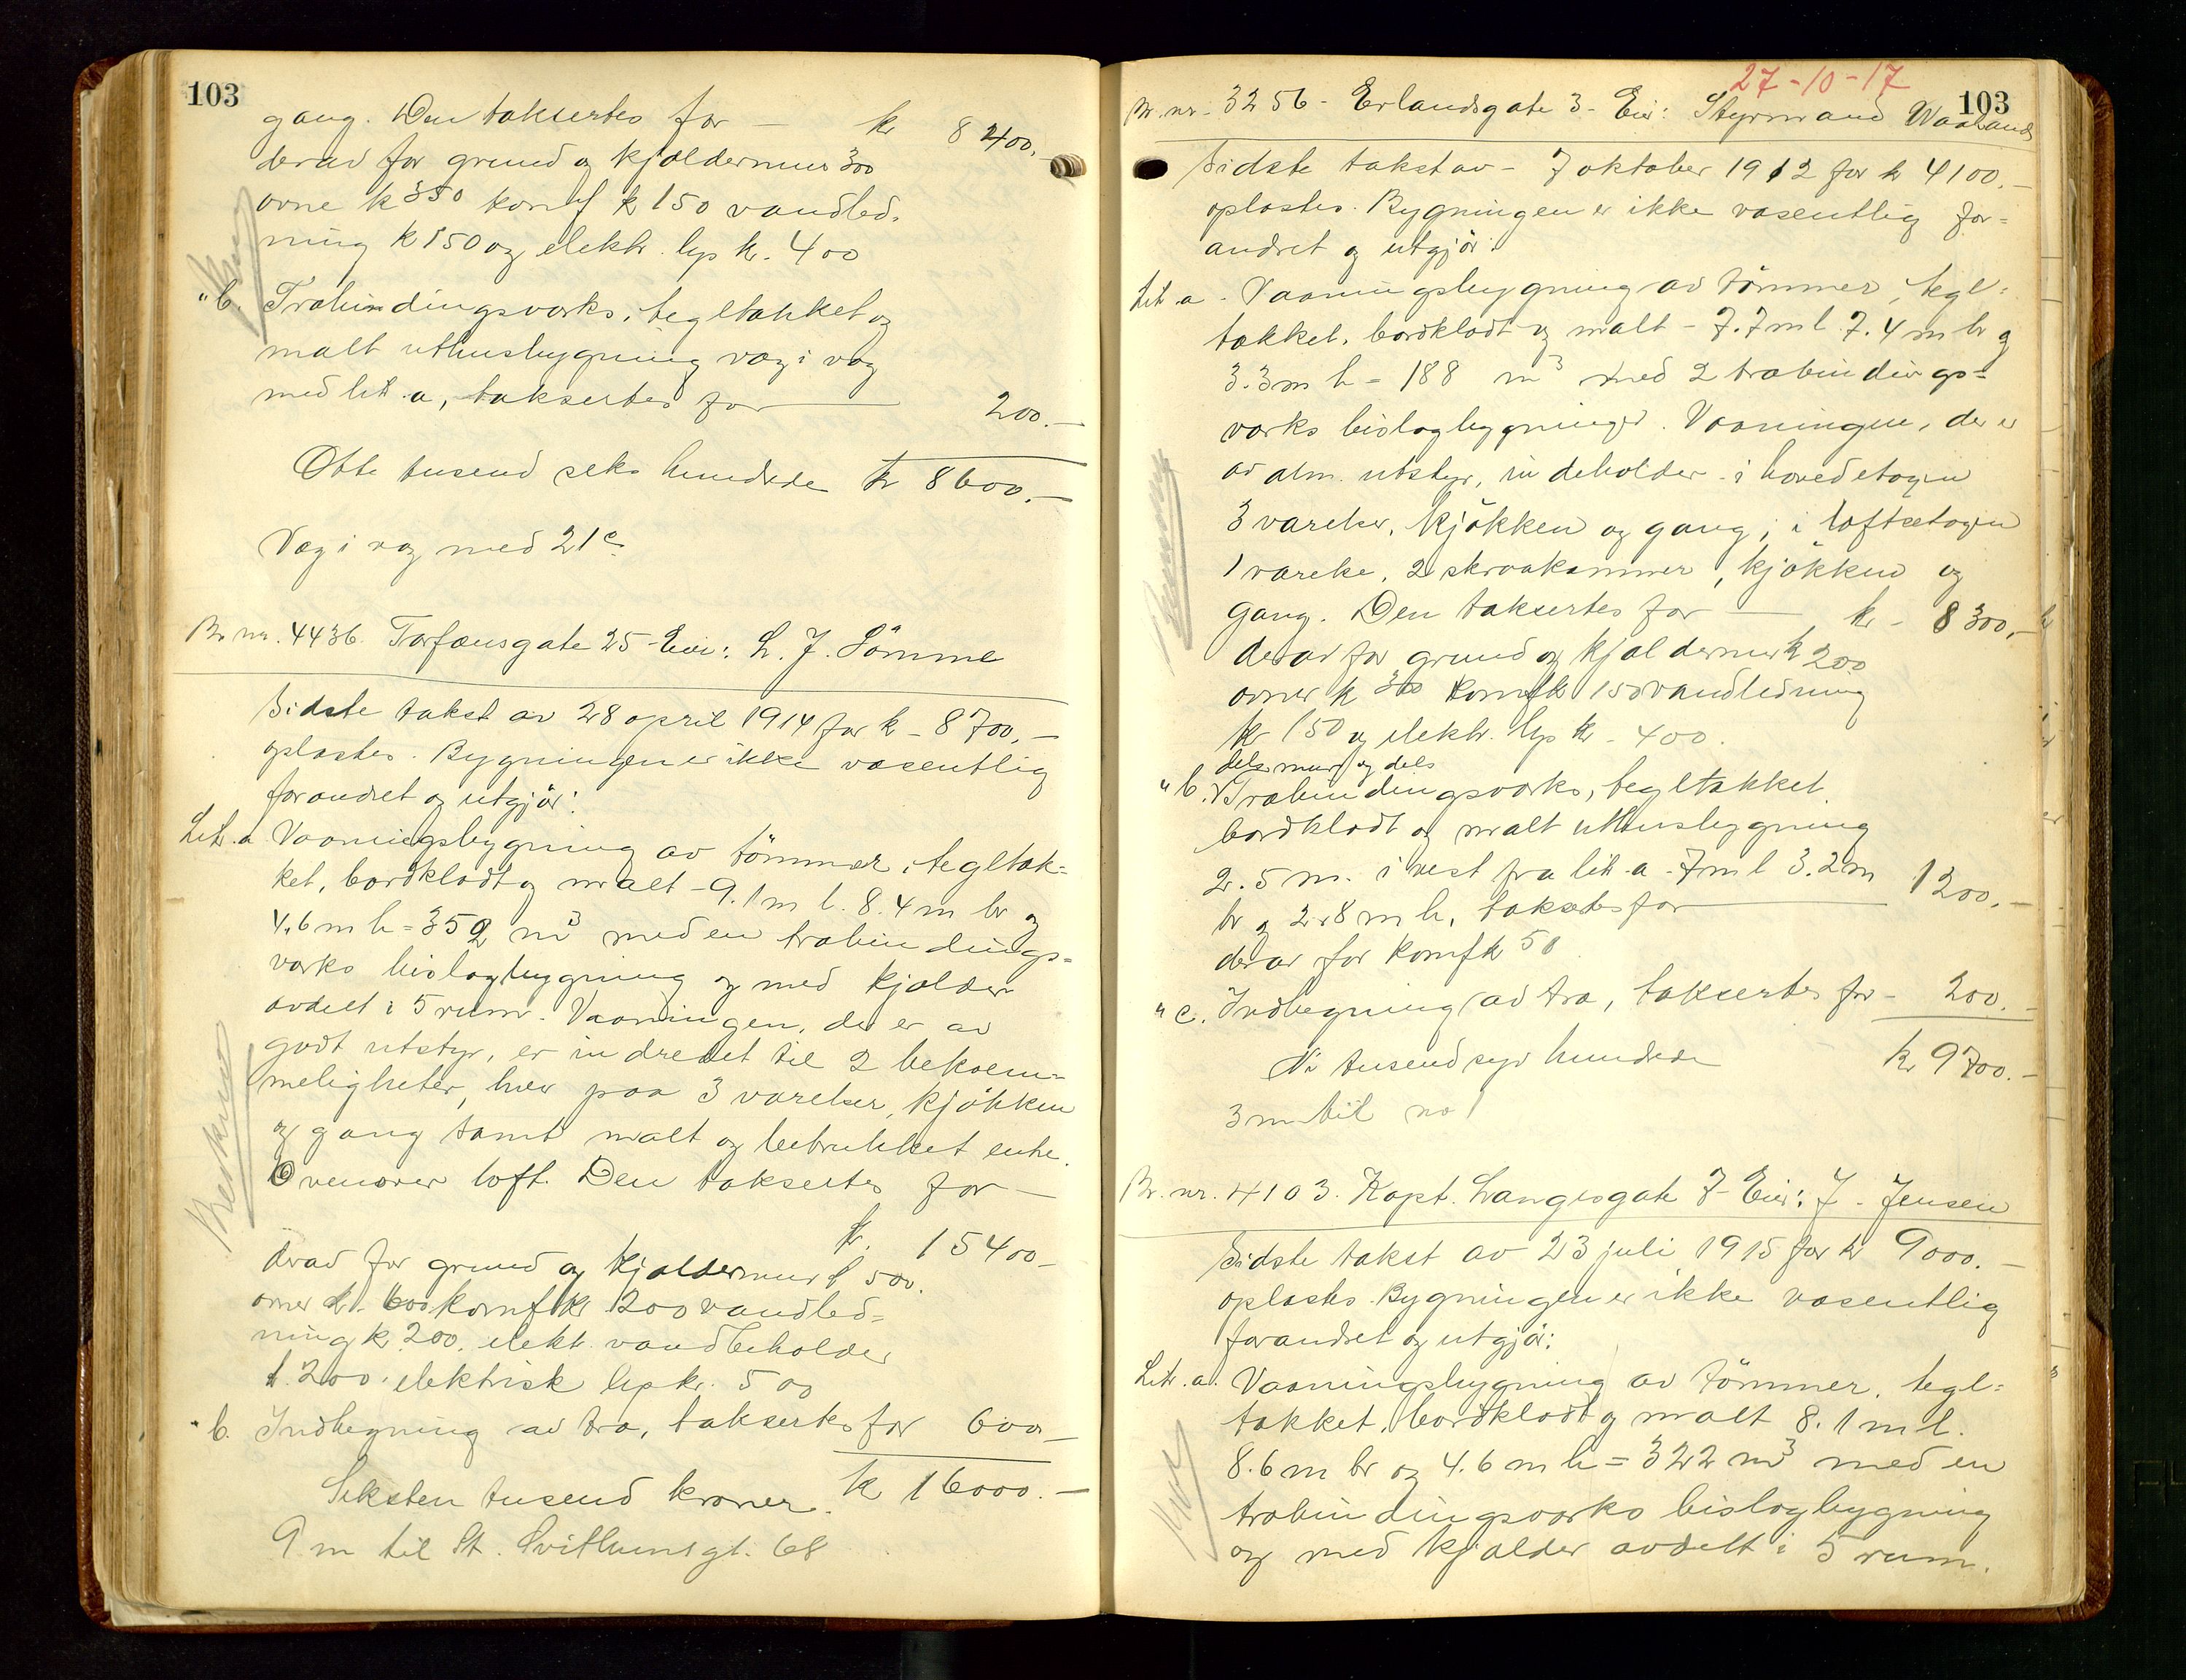 103
gang. Den taksertes for — kr 8400.—
derav for grund og kjældermur 300
ovne k 350 komf k 150 vandled-
ning k 150 og elektr. lys kr. 400
" b. Træbindingsværks, tegltækket og
malt uthusbygning væg i væg
med lit. a, taksertes for — 200.—
Otte tusend seks hundrede kr 8600.—
Væg i væg med 21c
Br nr. 4436. Torfæusgate 25 - Eier: L. J. Sömme
Sidste takst av 28 april 1914 for k - 8700.—
oplæstes. Bygningen er ikke væsentlig
forandret og utgjör:
Lit. a Vaaningsbygning av tömmer, tegltæk-
ket, bordklædt og malt - 9.1 m l. 8.4 m br og
4.6 m h = 352 m3 med en træbindings-
værks bislagbygning og med kjælder
avdelt i 5 rum. Vaaningen, der er av
godt utstyr, er indredet til 2 bekvem-
meligheter, hver paa 3 værelser, kjökken
og gang samt malt og betrukket entre.
Ovenover loft. Den taksertes for —
kr. 15400-
derav for grund og kjældermur k 500.
ovner k 600 komf kr 200 vandled-
ning k. 200. elektr. vandbeholder
k. 200. elektrisk lys kr. 500
" b. Indhegning av træ, taksertes for 600—
Seksten tusend kroner. k 16000.—
9 m til St. Svithunsgt. 68
27-10-17
103
Br. nr. 3256 - Erlandsgate 3 - Eier: Styrmand Waaland
Sidste takst av - 7 oktober 1912 for k 4100.—
oplæstes. Bygningen er ikke væsentlig for-
andret og utgjör:
Lit. a. Vaaningsbygning av tömmer, tegl-
tækket, bordklædt og malt - 7.7 m l. 7.4 m br og
3.3 m h = 188 m3 med 2 træbindings-
værks bislagbygninger. Vaaningen, der er
av alm. utstyr, indeholder i hovedetagen
3 værelser, kjökken og gang; i loftsetagen
1 værelse, 2 skraakammer, kjökken og
gang. Den taksertes for — kr - 8300.—
derav for grund og kjældermur k 200
ovner k 300 komf k 150 vandledning
kr 150 og elektr. lys kr - 400.
dels mur og dels
" b. Træbindingsværks, tegltækket
bordklædt og malt uthusbygning
2.5 m. i vest fra lit. a - 7 m l 3.2 m
br og 2.8 m h, taksertes for — 1200.—
derav for komf k 50
" c. Indhegning av træ, taksertes for - 200.—
Ni tusend syv hundrede kr 9700.—
3 m til no 1
Br. nr. 4103. Kapt. Langesgate 7 - Eier: J. Jensen
Sidste takst av 23 juli 1915 for kr 9000.—
oplæstes. Bygningen er ikke væsentlig
forandret og utgjör:
Lit. a. Vaaningsbygning av tömmer, tegl-
tækket, bordklædt og malt 8.1 m l.
8.6 m br og 4.6 m h = 322 m3 med en
træbindingsværks bislagbygning
og med kjælder avdelt i 5 rum.